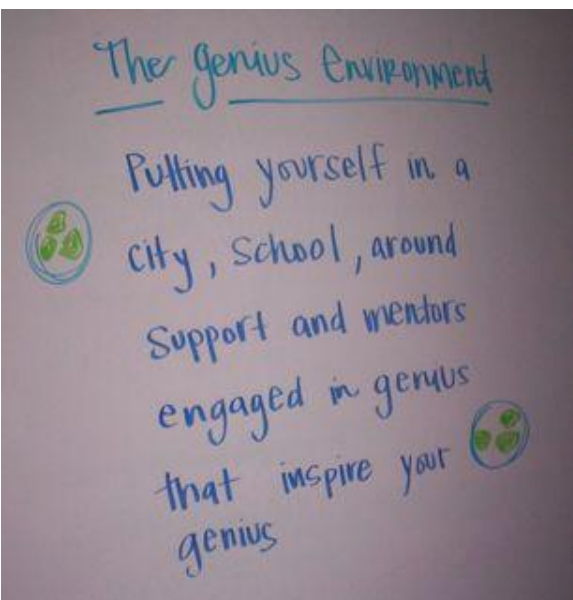 The genius Environment
Putting yourself in a
city, School, around
Support and mentors
engaged in genius
that inspire your
genius